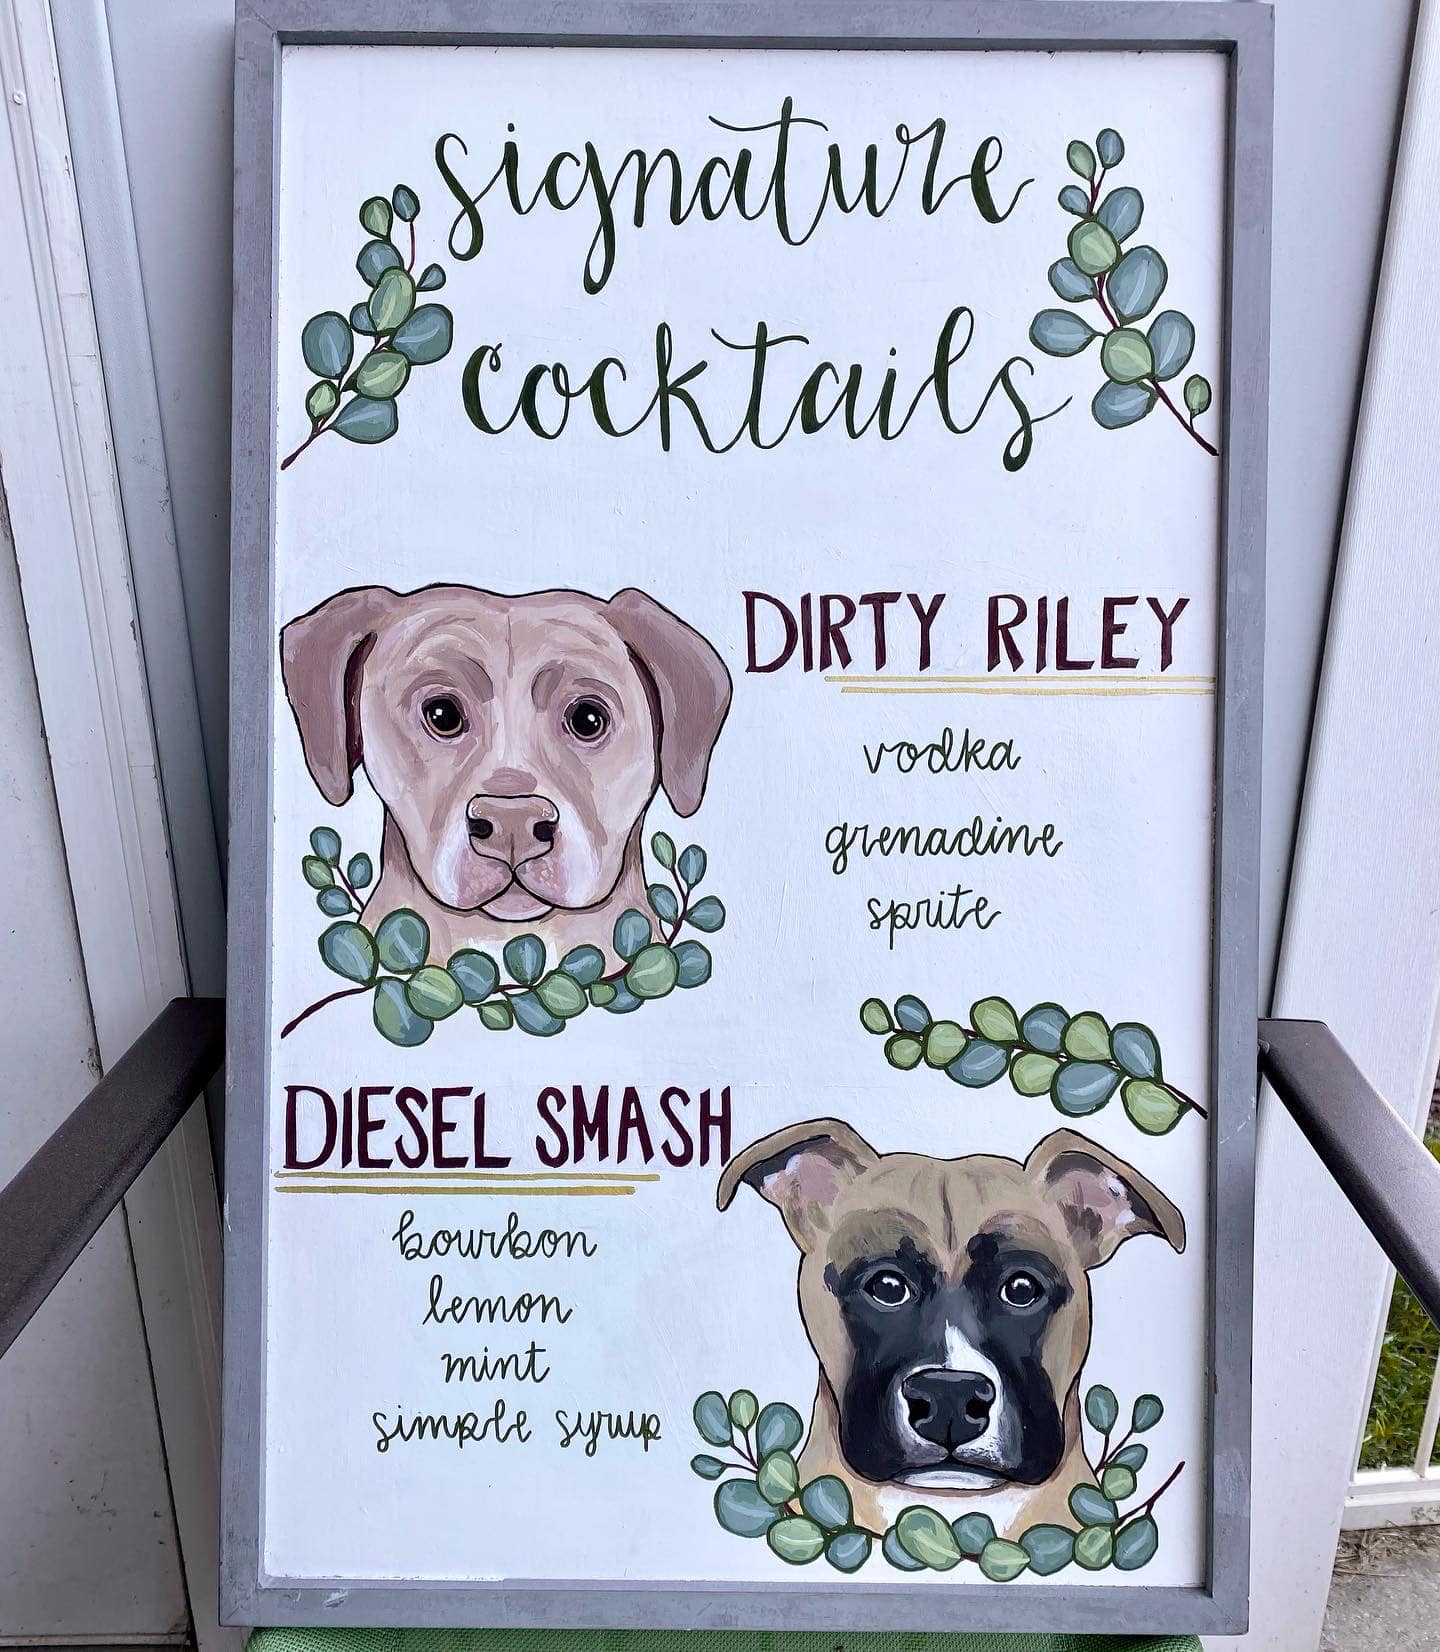 signature
cocktails
DIRTY RILEY
vodka
grenadine
sprite
DIESEL SMASH
bourbon
lemon
mint
simple syrup